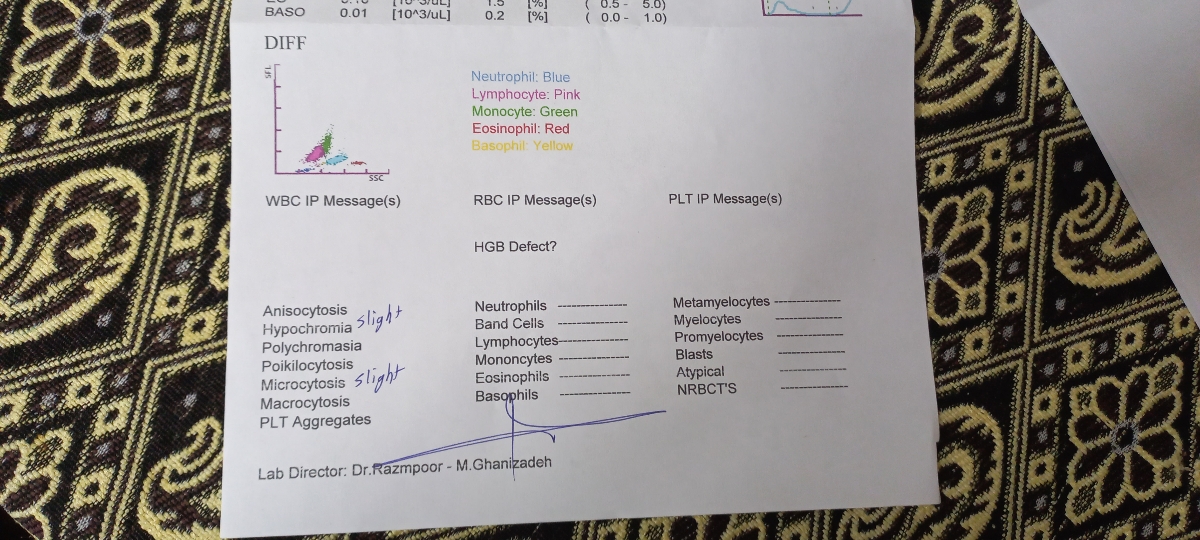 1.5 [%] ( 0.5 - 5.0)
BASO 0.01 [10^3/uL] 0.2 [%] ( 0.0 - 1.0)
DIFF
SFL
SSC
Neutrophil: Blue
Lymphocyte: Pink
Monocyte: Green
Eosinophil: Red
Basophil: Yellow
WBC IP Message(s) RBC IP Message(s) PLT IP Message(s)
HGB Defect?
Anisocytosis
Hypochromia slight
Polychromasia
Poikilocytosis
Microcytosis slight
Macrocytosis
PLT Aggregates
Neutrophils ----------------
Band Cells ----------------
Lymphocytes----------------
Mononcytes ----------------
Eosinophils ----------------
Basophils ----------------
Metamyelocytes ---------------
Myelocytes ---------------
Promyelocytes ---------------
Blasts ---------------
Atypical ---------------
NRBCT'S ---------------
Lab Director: Dr.Razmpoor - M.Ghanizadeh